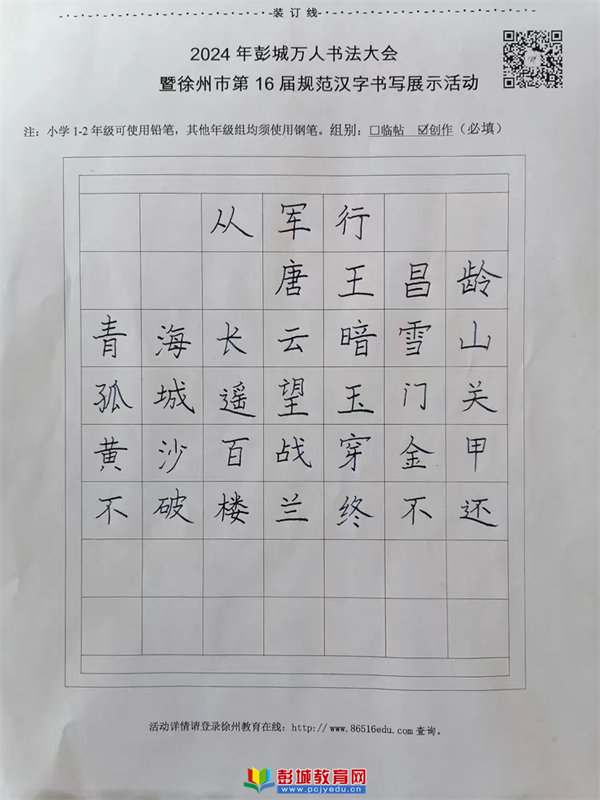 装订线
2024年彭城万人书法大会
暨徐州市第16届规范汉字书写展示活动
注：小学1-2年级可使用铅笔，其他年级组均须使用钢笔。组别：☐临帖 ☑创作（必填）
从军行
唐王昌龄
青海长云暗雪山
孤城遥望玉门关
黄沙百战穿金甲
不破楼兰终不还
活动详情请登录徐州教育在线：http://www.86516edu.com查询。
彭城教育网
www.pcjyedu.com